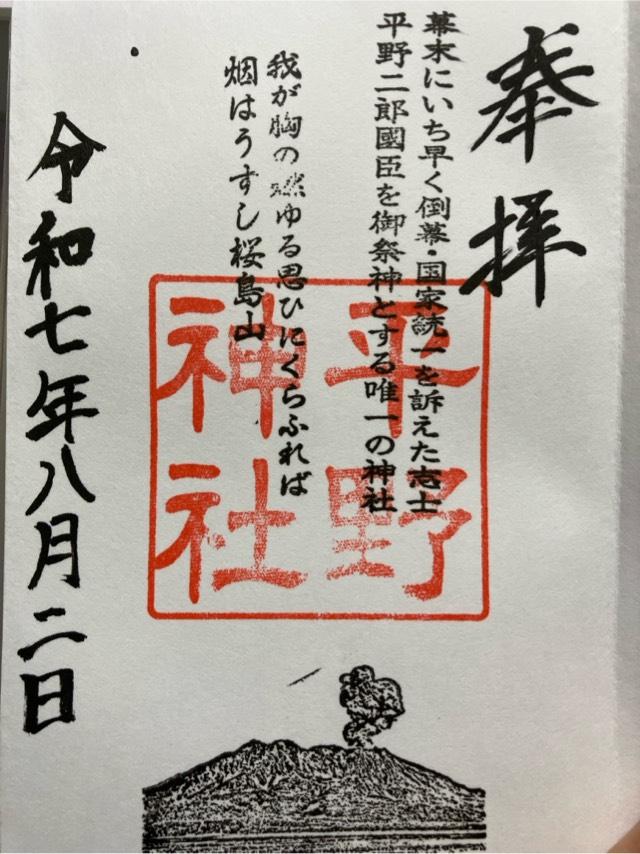 奉拝
幕末にいち早く倒幕・国家統一を訴えた志士
平野二郎國臣を御祭神とする唯一の神社
我が胸の燃ゆる思ひにくらふれば
烟はうすし桜島山
平野
神社
令和七年八月二日